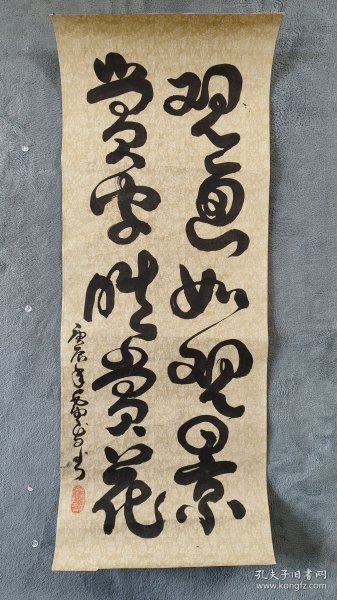 观画如观景
赏字胜赏花
庚辰年
书
孔夫子旧书网
www.kongfz.com